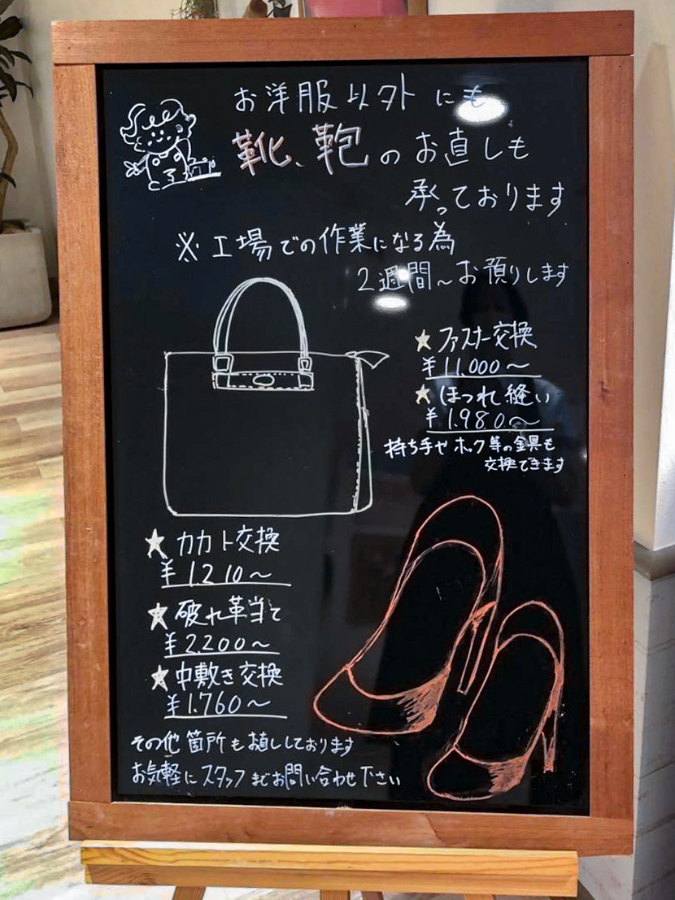 お洋服以外にも
靴、鞄のお直しも
承っております
※工場での作業になる為
2週間~お預りします
★ファスナー交換
¥11,000~
★ほつれ縫い
¥1,980~
持ち手やホック等の金具も
交換できます
★カカト交換
¥1,210~
★破れ革当て
¥2,200~
★中敷き交換
¥1,760~
その他箇所も直しております
お気軽にスタッフまでお問い合わせ下さい